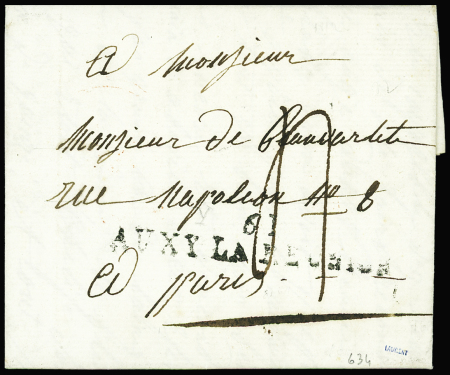 A Monsieur
Monsieur de
rue Napoleon No 8
61
AUXY.LA RÉUNION
A paris
634